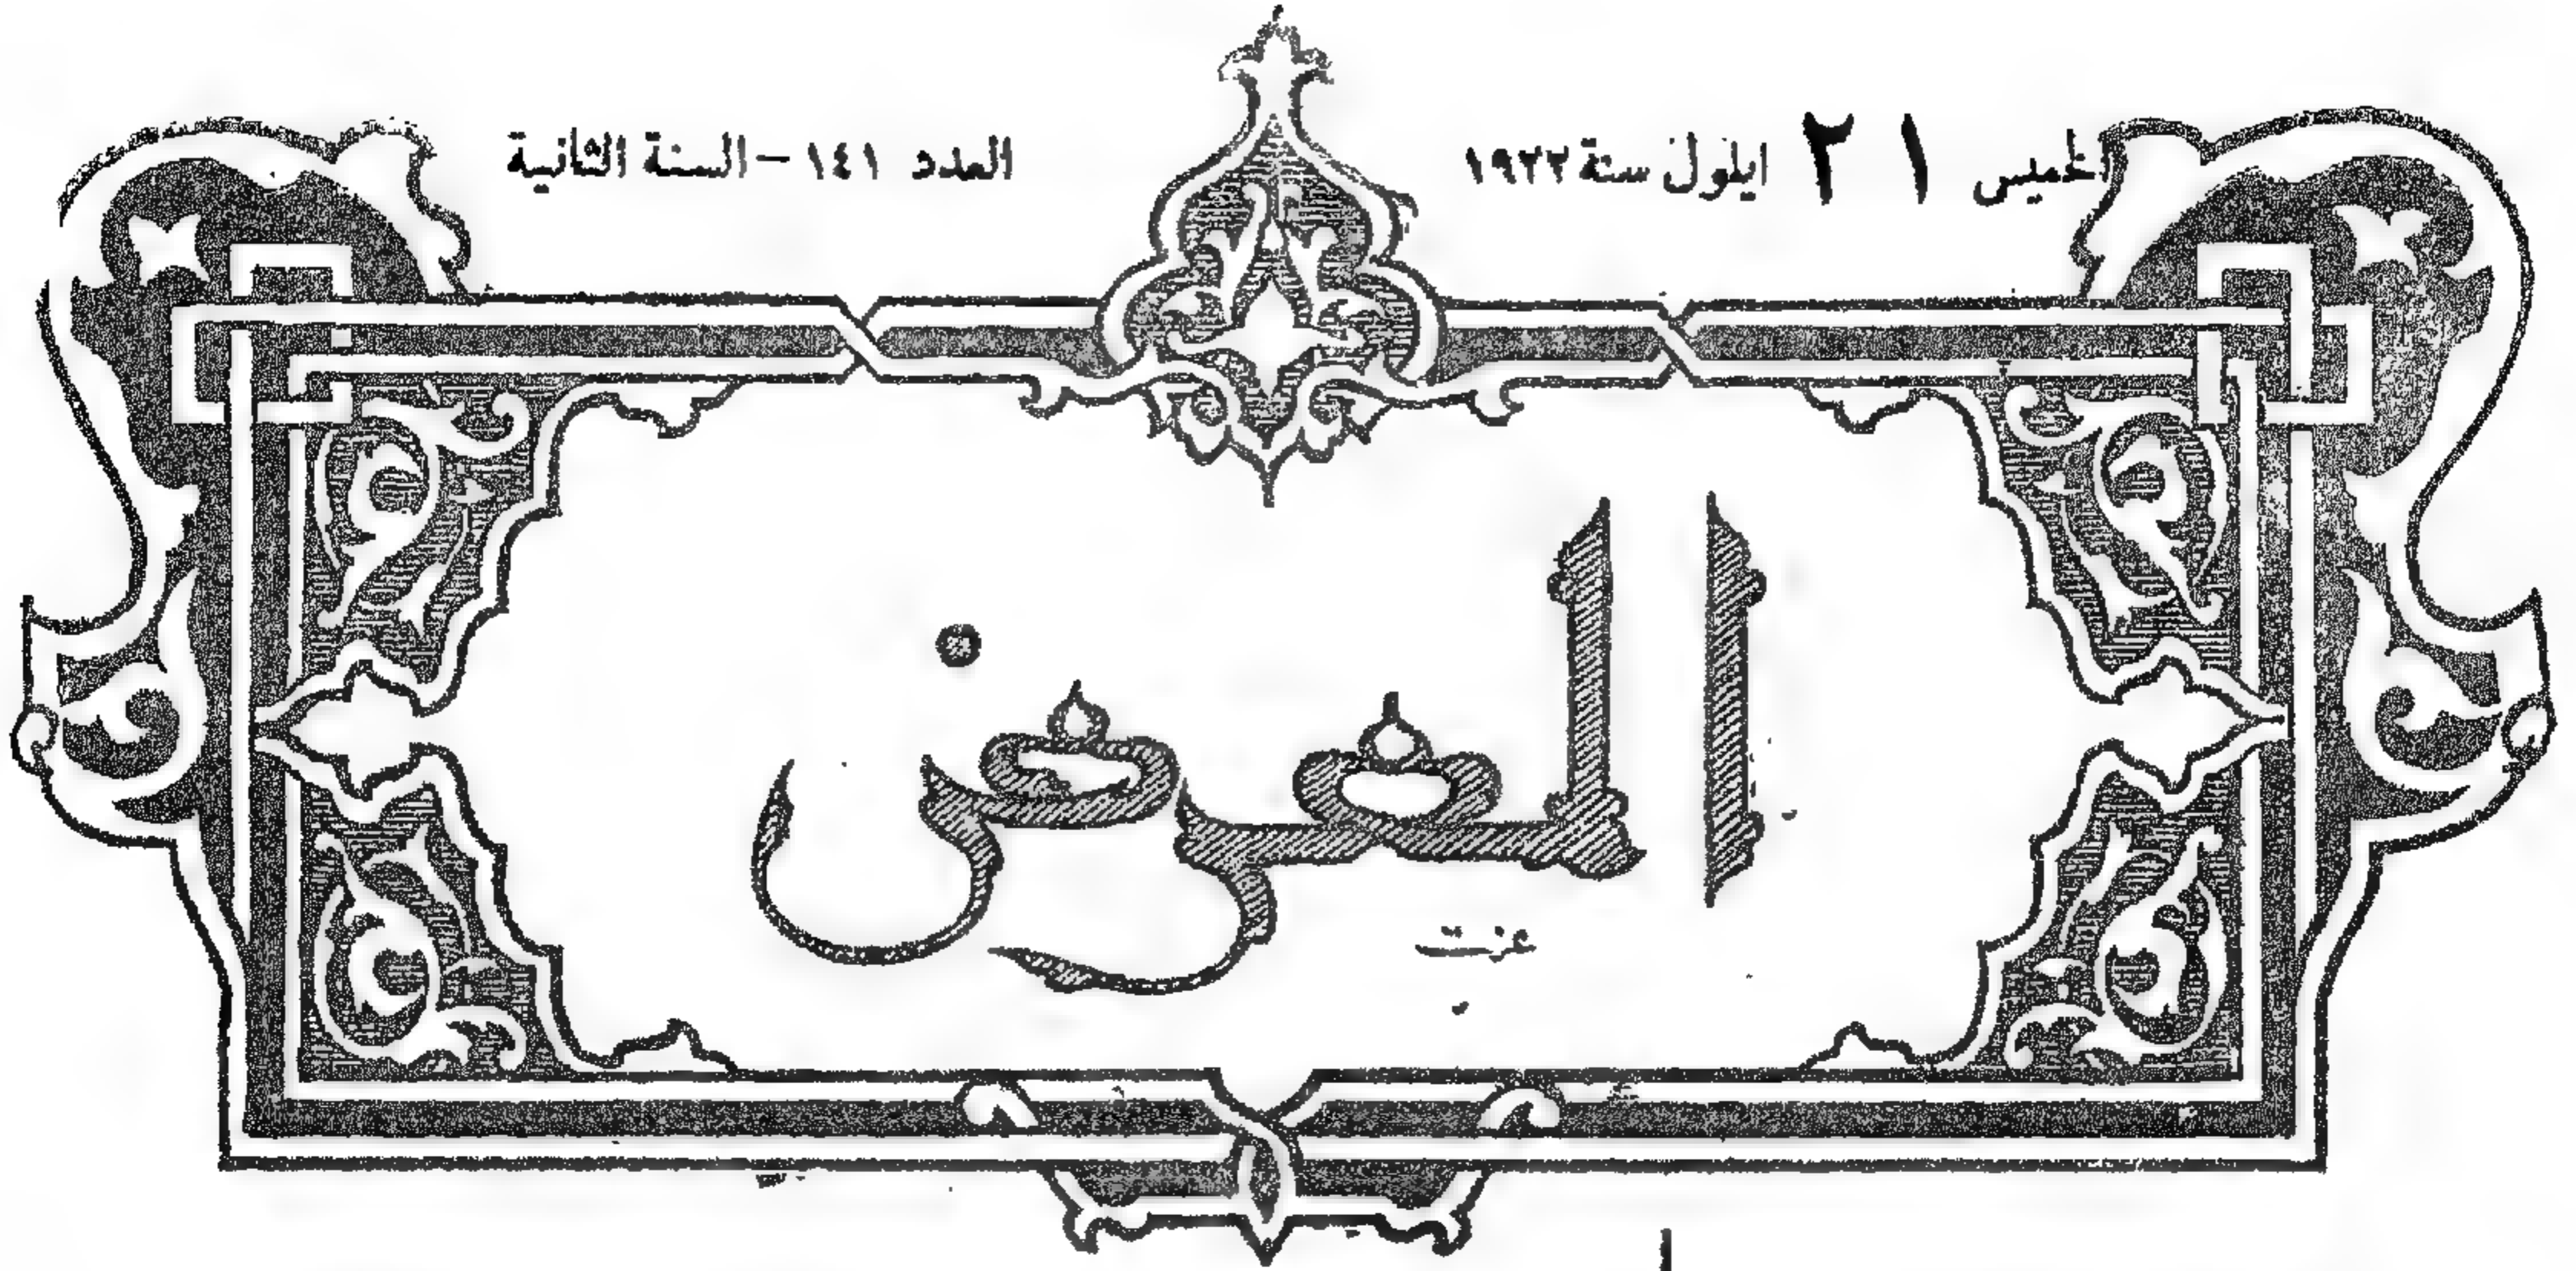 الخميس ٢١ ايلول سنة ١٩٢٢
العدد ١٤١ – السنة الثانية
المعرض